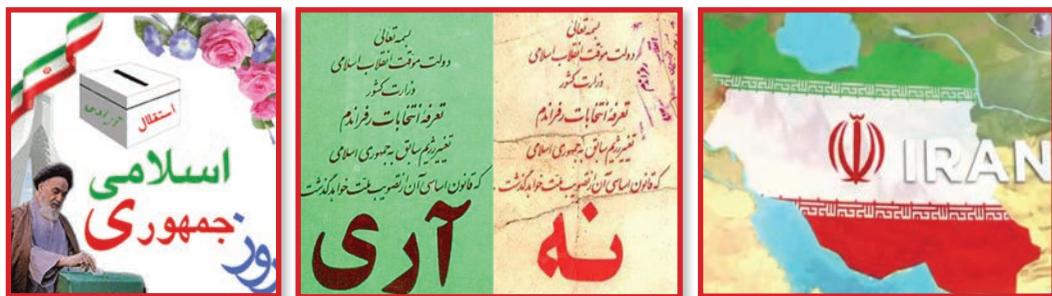 آزادی
استقلال
اسلامی
جمهوری
روز
بسمه تعالی
دولت موقت انقلاب اسلامی
وزارت کشور
تعرفه انتخابات رفراندم
تغییر رژیم سابق به جمهوری اسلامی
که قانون اساسی آن از تصویب ملت خواهد گذشت
آری
بسمه تعالی
دولت موقت انقلاب اسلامی
وزارت کشور
تعرفه انتخابات رفراندم
تغییر رژیم سابق به جمهوری اسلامی
که قانون اساسی آن از تصویب ملت خواهد گذشت.
نه
IRAN